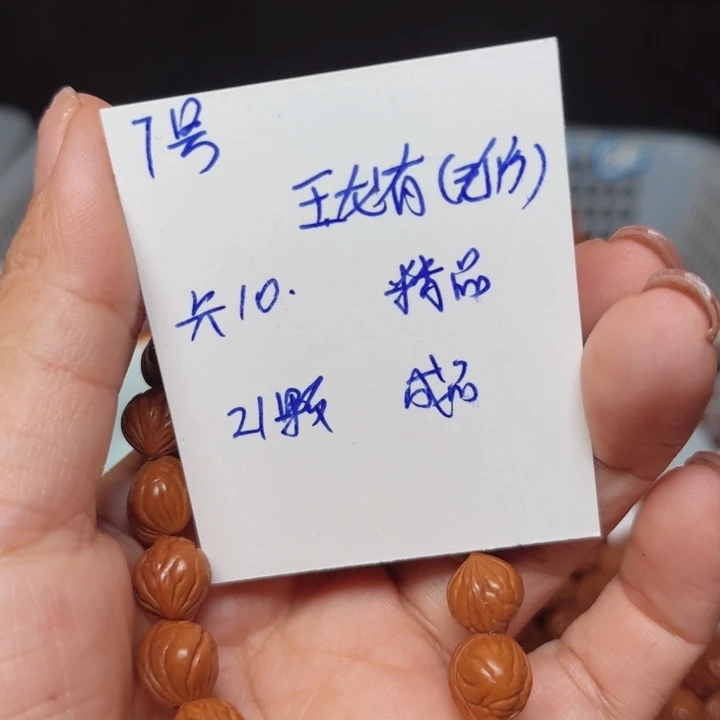 7号
王龙有(元价)
共10. 精品
21颗 成品